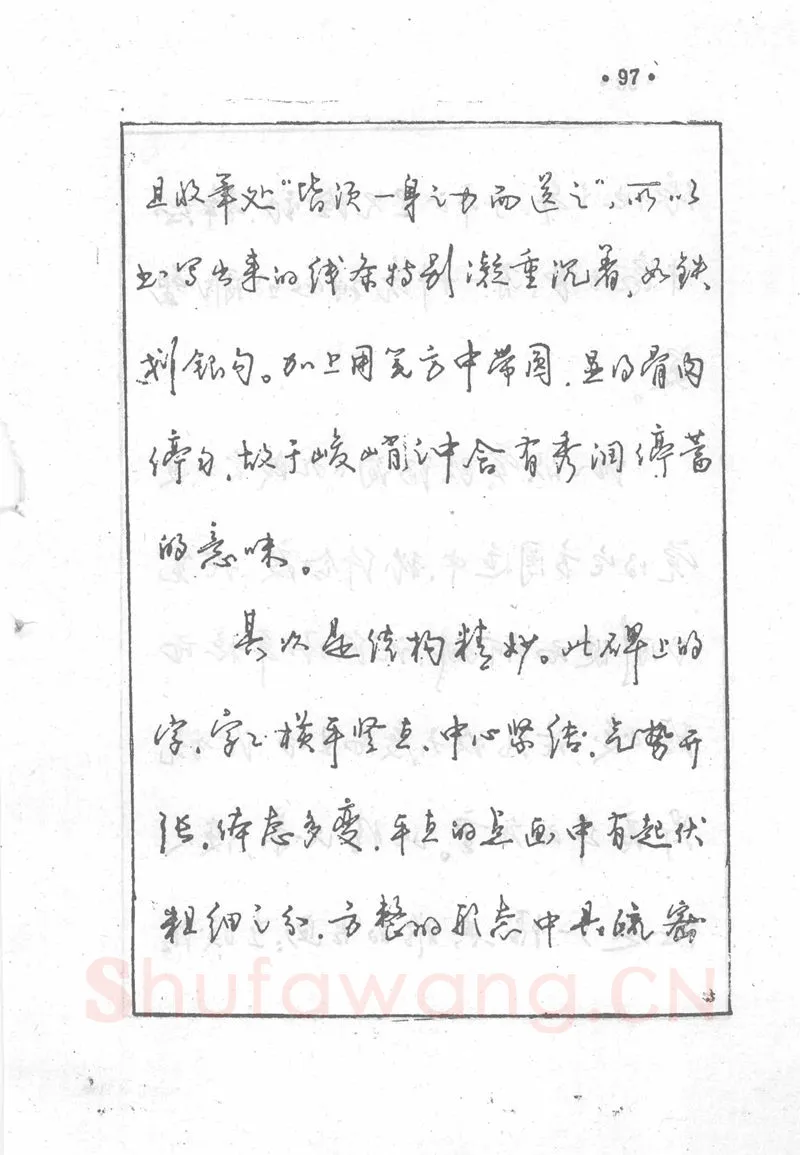 •97•
且收笔处“皆须一身之力而送之”,所以
书写出来的线条特别凝重沉着,如铁
划银勾。加上用笔方中带圆,显得骨肉
停匀,故于峻峭之中含有秀润停蓄
的意味。
其次是结构精妙。此碑上的
字,字字横平竖直,中心紧结,气势开
张,体态多变,平直的点画中有起伏
粗细之分,方整的形态中具疏密
Shufawang.CN